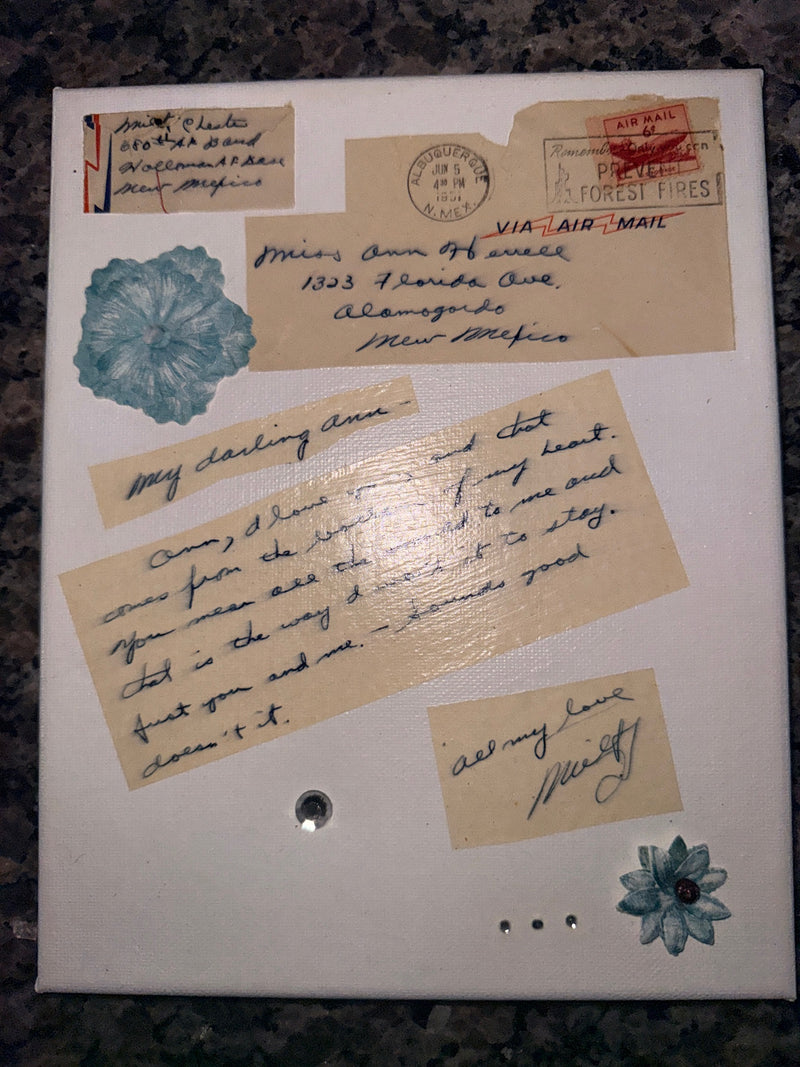 Milt Chester
680th AF Band
Holloman AF Base
New Mexico
ALBUQUERQUE
JUN 5
4 30 PM
1951
N. MEX.
AIR MAIL
6¢
Remember Only you can
PREVENT
FOREST FIRES
VIA AIR MAIL
Miss Ann Herrell
1323 Florida Ave.
Alamogordo
New Mexico
My darling Ann —
Ann, I love you and that
comes from the bottom of my heart.
You mean all the world to me and
that is the way I want it to stay.
Just you and me. — Sounds good
doesn't it.
All my love
Milt